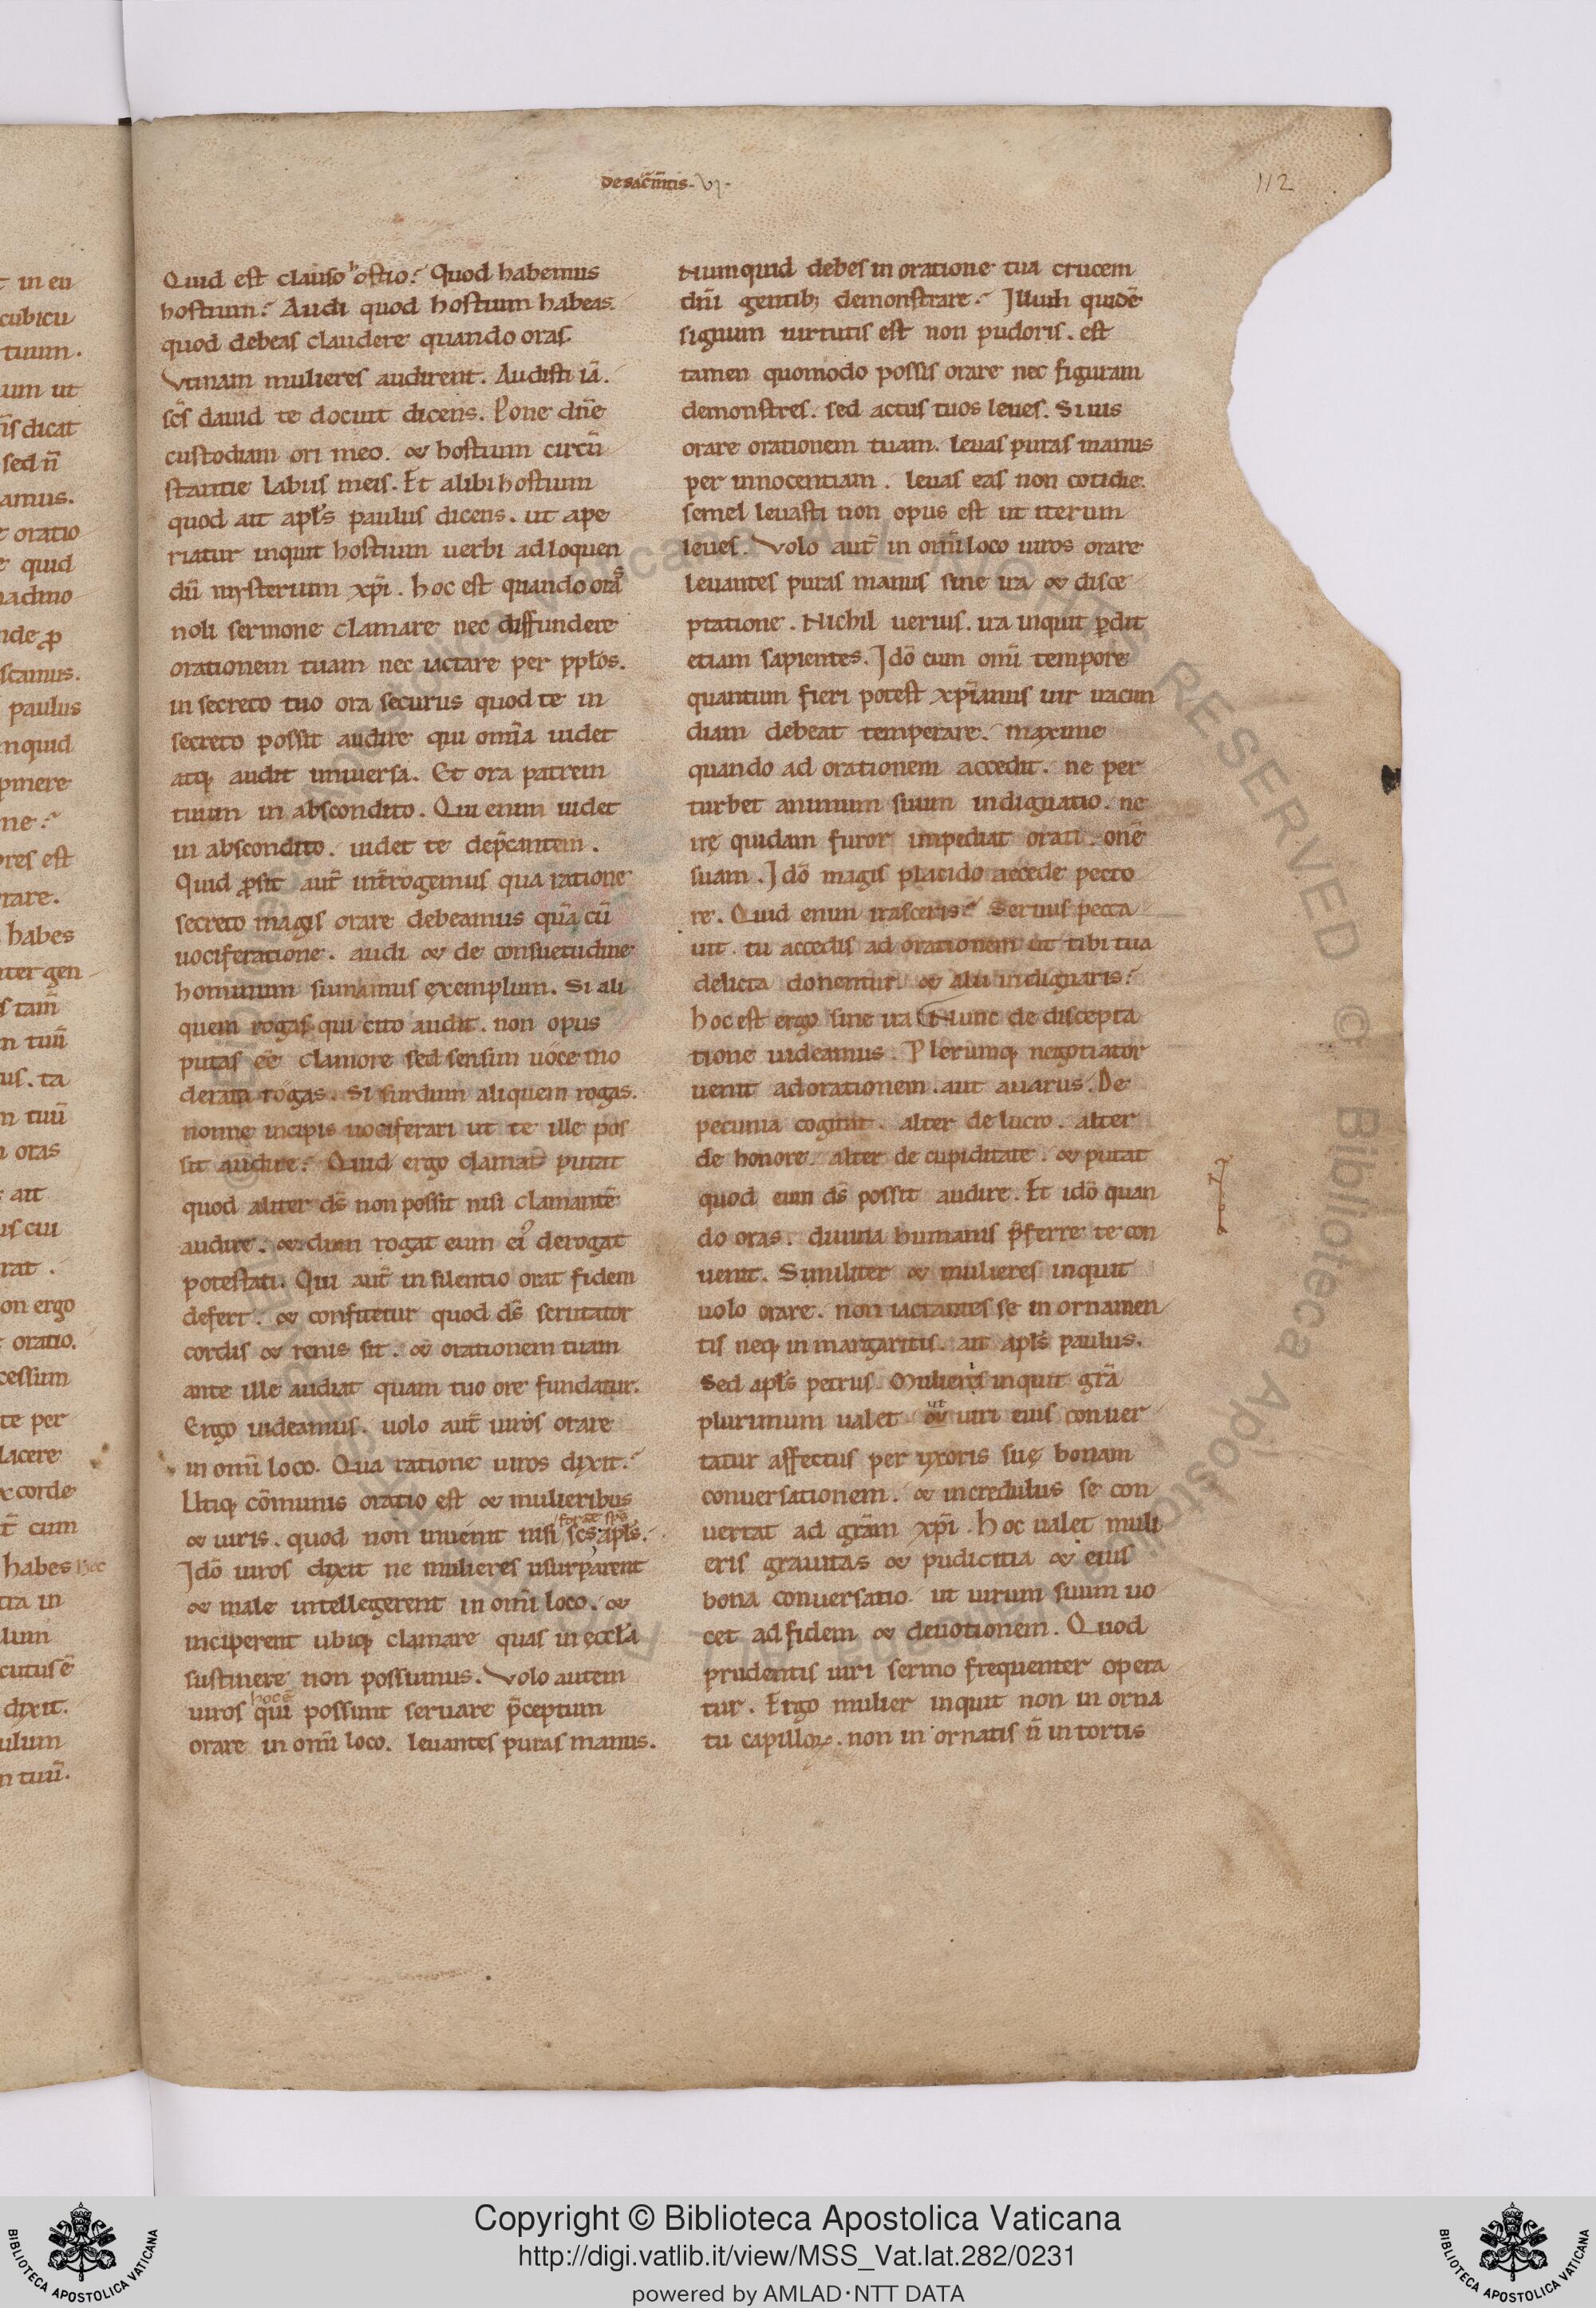 de sac̄m̄tis. VI.
112
Quid est clauso hostio? Quod habemus
hostium? Audi quod hostium habeas.
quod debeas claudere quando oras.
Vtinam mulieres audirent. Audisti iā.
sc̄s dauid te docuit dicens. Pone dn̄e
custodiam ori meo. & hostium circū
stantie labiis meis. Et alibi hostium
quod ait apl̄s paulus dicens. ut ape
riatur inquit hostium uerbi ad loquen
dū mysterium xp̄i. hoc est quando oras
noli sermone clamare nec diffundere
orationem tuam nec iactare per ppl̄os.
in secreto tuo ora securus quod te in
secreto possit audire qui om̄ia uidet
atq; audit uniuersa. Et ora patrem
tuum in abscondito. Qui enim uidet
in abscondito. uidet te dep̄cantem.
Quid ꝓsit aut̄ int̄rogemus qua ratione
secreto magis orare debeamus quā cū
uociferatione. audi & de consuetudine
hominum sumamus exemplum. Si ali
quem rogas qui cito audit. non opus
putas eē clamore sed sensim uoce mo
derata rogas. Si surdum aliquem rogas.
nonne incipis uociferari ut te ille pos
sit audire? Quid ergo clamat putat
quod aliter ds̄ non possit nisi clamantē
audire. & dum rogat eum ei' derogat
potestati. Qui aut̄ in silentio orat fidem
defert. & confitetur quod ds̄ scrutator
cordis & renis sit. & orationem tuam
ante ille audiat quam tuo ore fundatur.
Ergo uideamus. uolo aut̄ uiros orare
in om̄i loco. Qua ratione uiros dixit?
Utiq; cōmunis oratio est & mulieribus
& uiris. quod non inuenit nisi sc̄s apl̄s.
Idō uiros dixit ne mulieres usurparent
& male intellegerent in om̄i loco. &
inciperent ubiq; clamare quas in eccl̄a
sustinere non possumus. Volo autem
hoc ē
uiros qui possint seruare p̄ceptum
orare in om̄i loco. leuantes puras manus.
Numquid debes in oratione tua crucem
dn̄i gentib; demonstrare? Illud quidē
signum uirtutis est non pudoris. est
tamen quomodo possis orare nec figuram
demonstres. sed actus tuos leues. Si uis
orare orationem tuam. leuas puras manus
per innocentiam. leuas eas non cotidie.
semel leuasti non opus est ut iterum
leues. Volo aut̄ in om̄i loco uiros orare
leuantes puras manus sine ira & disce
ptatione. Nichil uerius. ira inquit ꝑdit
etiam sapientes. Idō cum om̄i tempore
quantum fieri potest xp̄ianus uir iracun
diam debeat temperare. maxime
quando ad orationem accedit. ne per
turbet animum suum indignatio. ne
irę quidam furor impediat orati onē
suam. Idō magis placido accede pecto
re. Quid enim irasceris? Seruus pecca
uit. tu accedis ad orationem ut tibi tua
delicta donentur & alii indignaris?
hoc est ergo sine ira. Nunc de discepta
tione uideamus. Plerumq; negotiator
uenit ad orationem. aut auarus. De
pecunia cogitat. alter de lucro. alter
de honore. alter de cupiditate. & putat
quod eum ds̄ possit audire. Et idō quan
do oras. diuina humanis p̄ferre te con
uenit. Similiter & mulieres inquit
uolo orare. non iactantes se in ornamen
tis neq; in margaritis. ait apl̄s paulus.
Sed apl̄s petrus. Mulieris inquit gr̄a
ut
plurimum ualet & uiri eius conuer
tatur affectus per uxoris suę bonam
conuersationem. & incredulus se con
uertat ad gr̄am xp̄i. Hoc ualet muli
eris grauitas & pudicitia & eius
bona conuersatio ut uirum suum uo
cet ad fidem & deuotionem. Quod
prudentis uiri sermo frequenter opera
tur. Ergo mulier inquit non in orna
tu capilloꝝ. non in ornatis n̄ in tortis
Copyright © Biblioteca Apostolica Vaticana
http://digi.vatlib.it/view/MSS_Vat.lat.282/0231
powered by AMLAD·NTT DATA